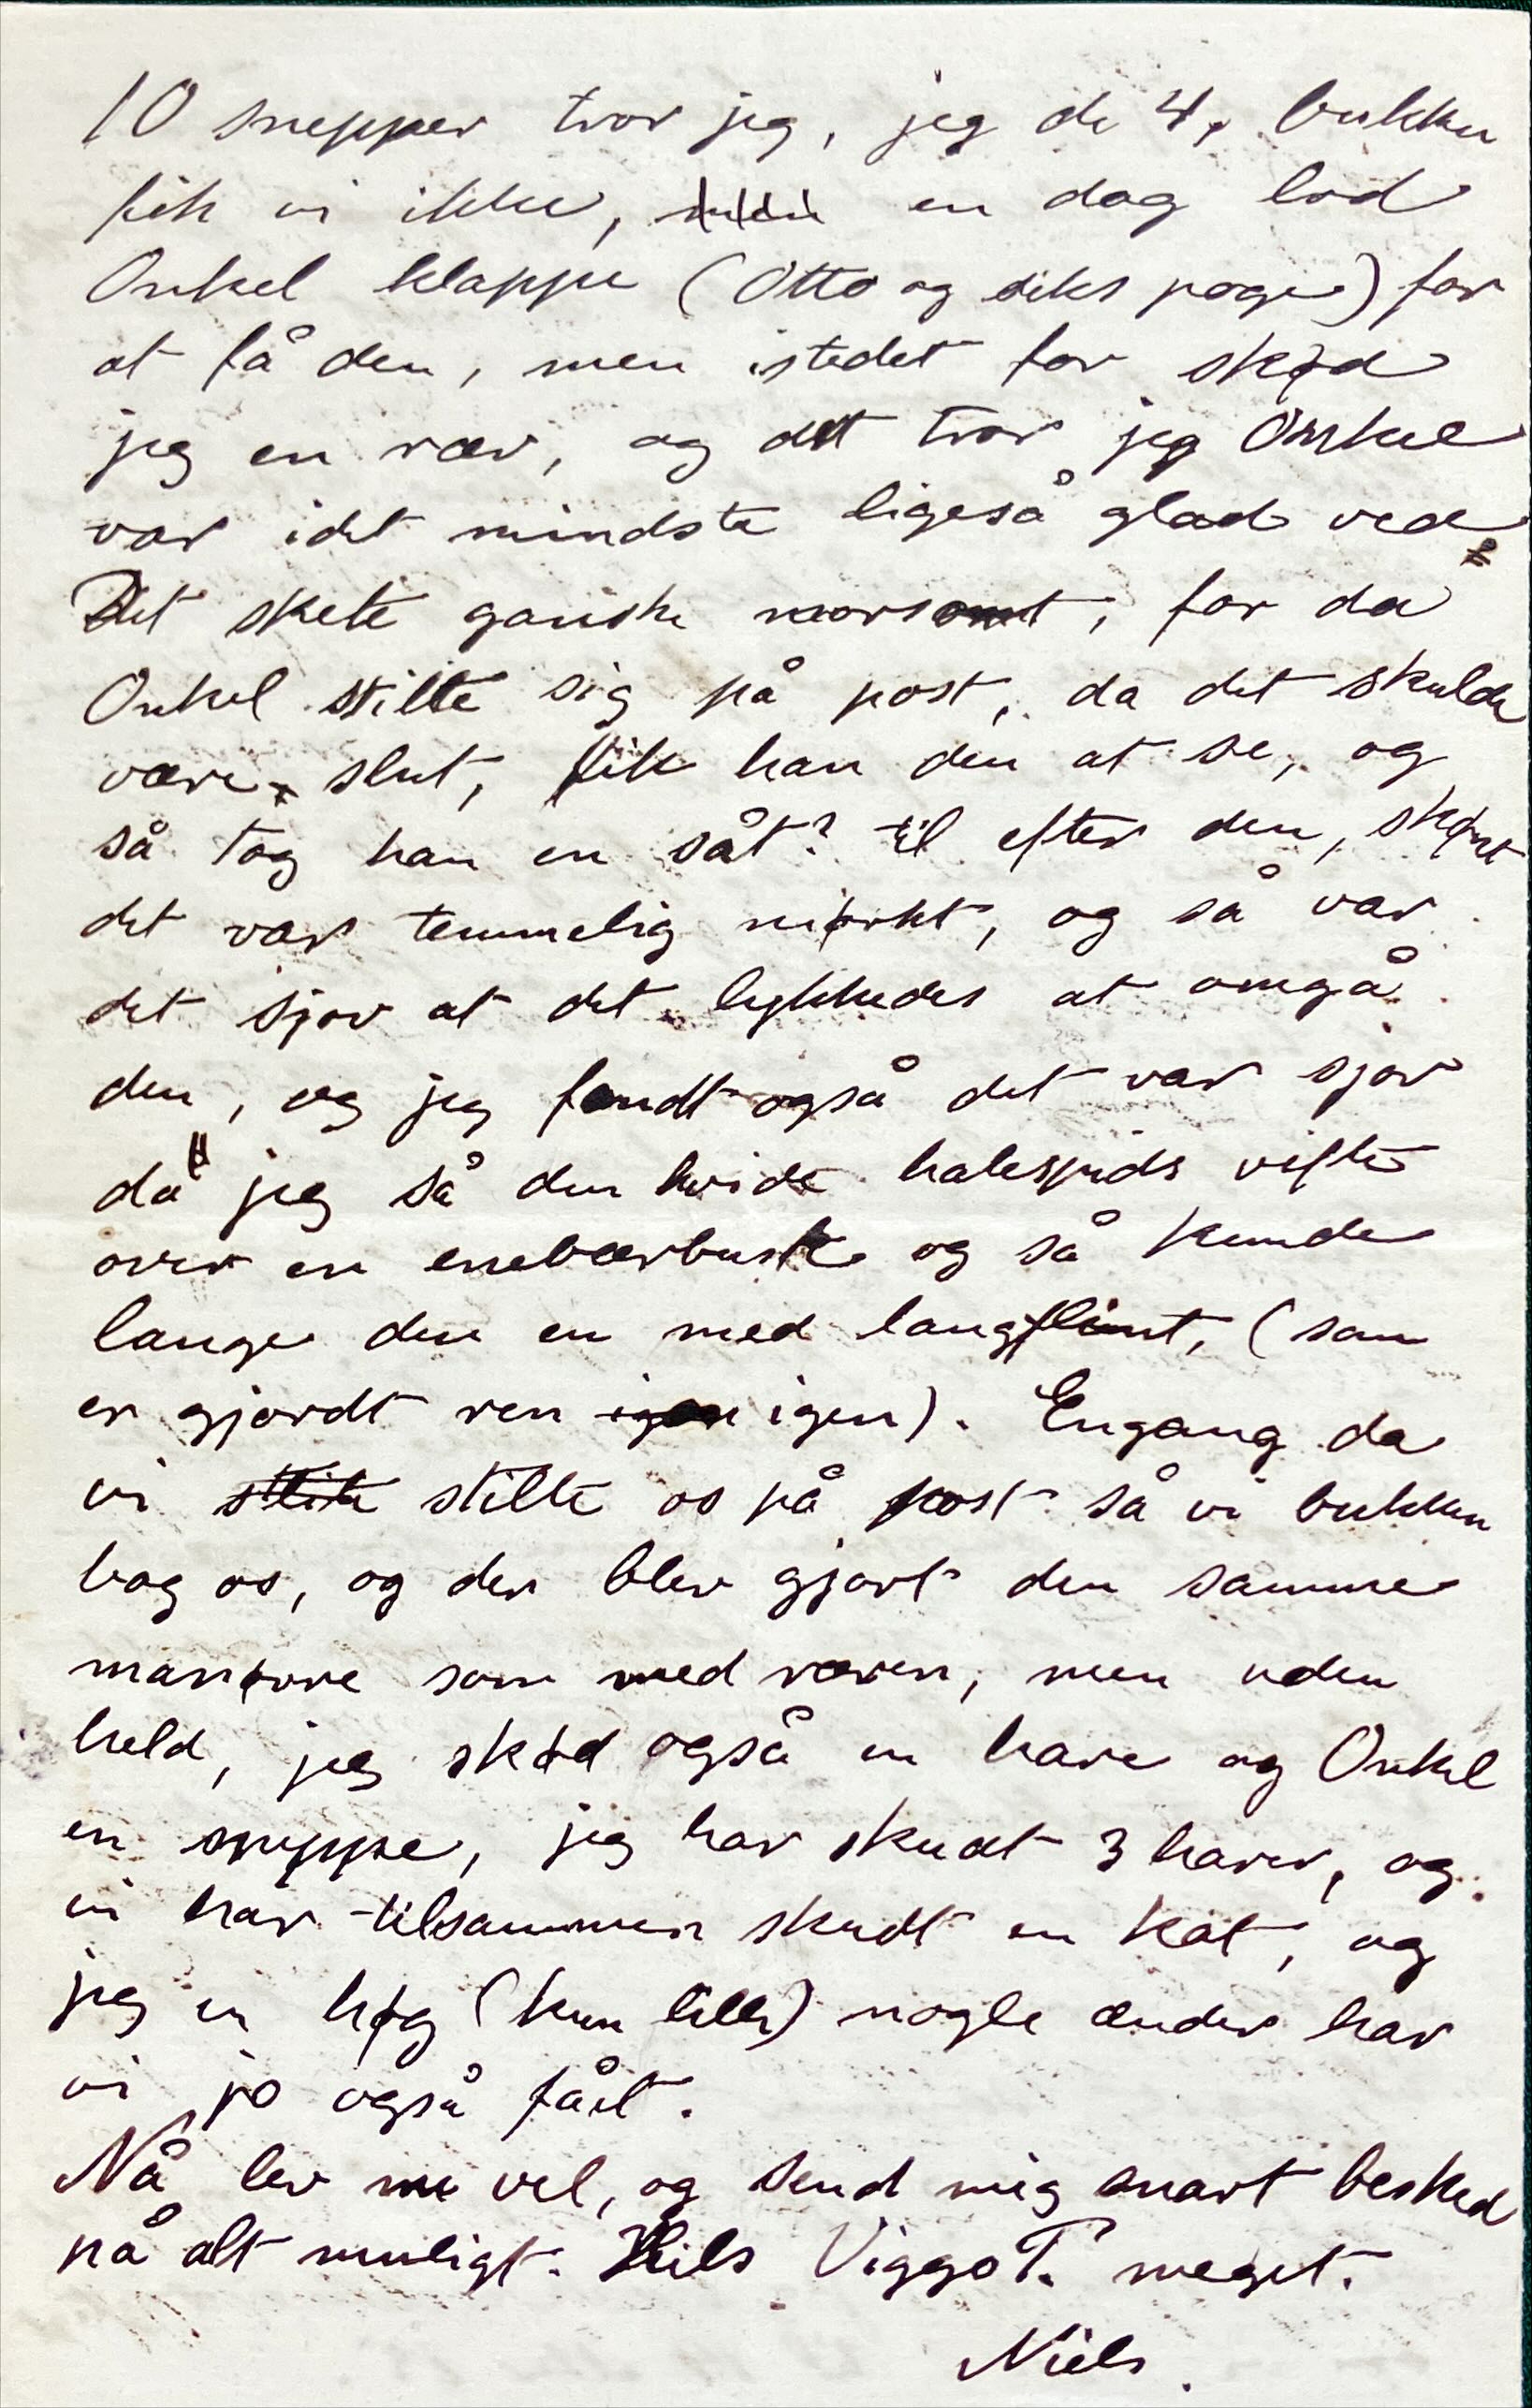 10 snepper tror jeg, jeg de 4, bukken
fik vi ikke, en dag lod
Onkel klappe (Otto og diks page) for
at få den, men istedet for skød
jeg en ræv, og det tror jeg Onkel
var idet mindste ligeså glad ved.
Det skete ganske morsomt, for da
Onkel stilte sig på post, da det skulde
være slut, fik han den at se, og
så tog han en såt? til efter den, skønt
det var temmelig mørkt, og så var
det sjov at det lykkedes at omgå
den, og jeg fandt også det var sjov
da jeg så den hvide halespids vifte
over en enebærbusk og så kunde
lange den en med langflint, (som
er gjordt ren igen igen). Engang da
vi stilte os på post så vi bukken
bag os, og der blev gjort den samme
manøvre som med ræven, men uden
held, jeg skød også en hare og Onkel
en sneppe, jeg har skudt 3 harer, og
vi har tilsammen skudt en kat, og
jeg en høg (kun lille) nogle ænder har
vi jo også fået.
Nå lev nu vel, og send mig snart besked
på alt muligt. Hils Viggo T. meget.
Niels.